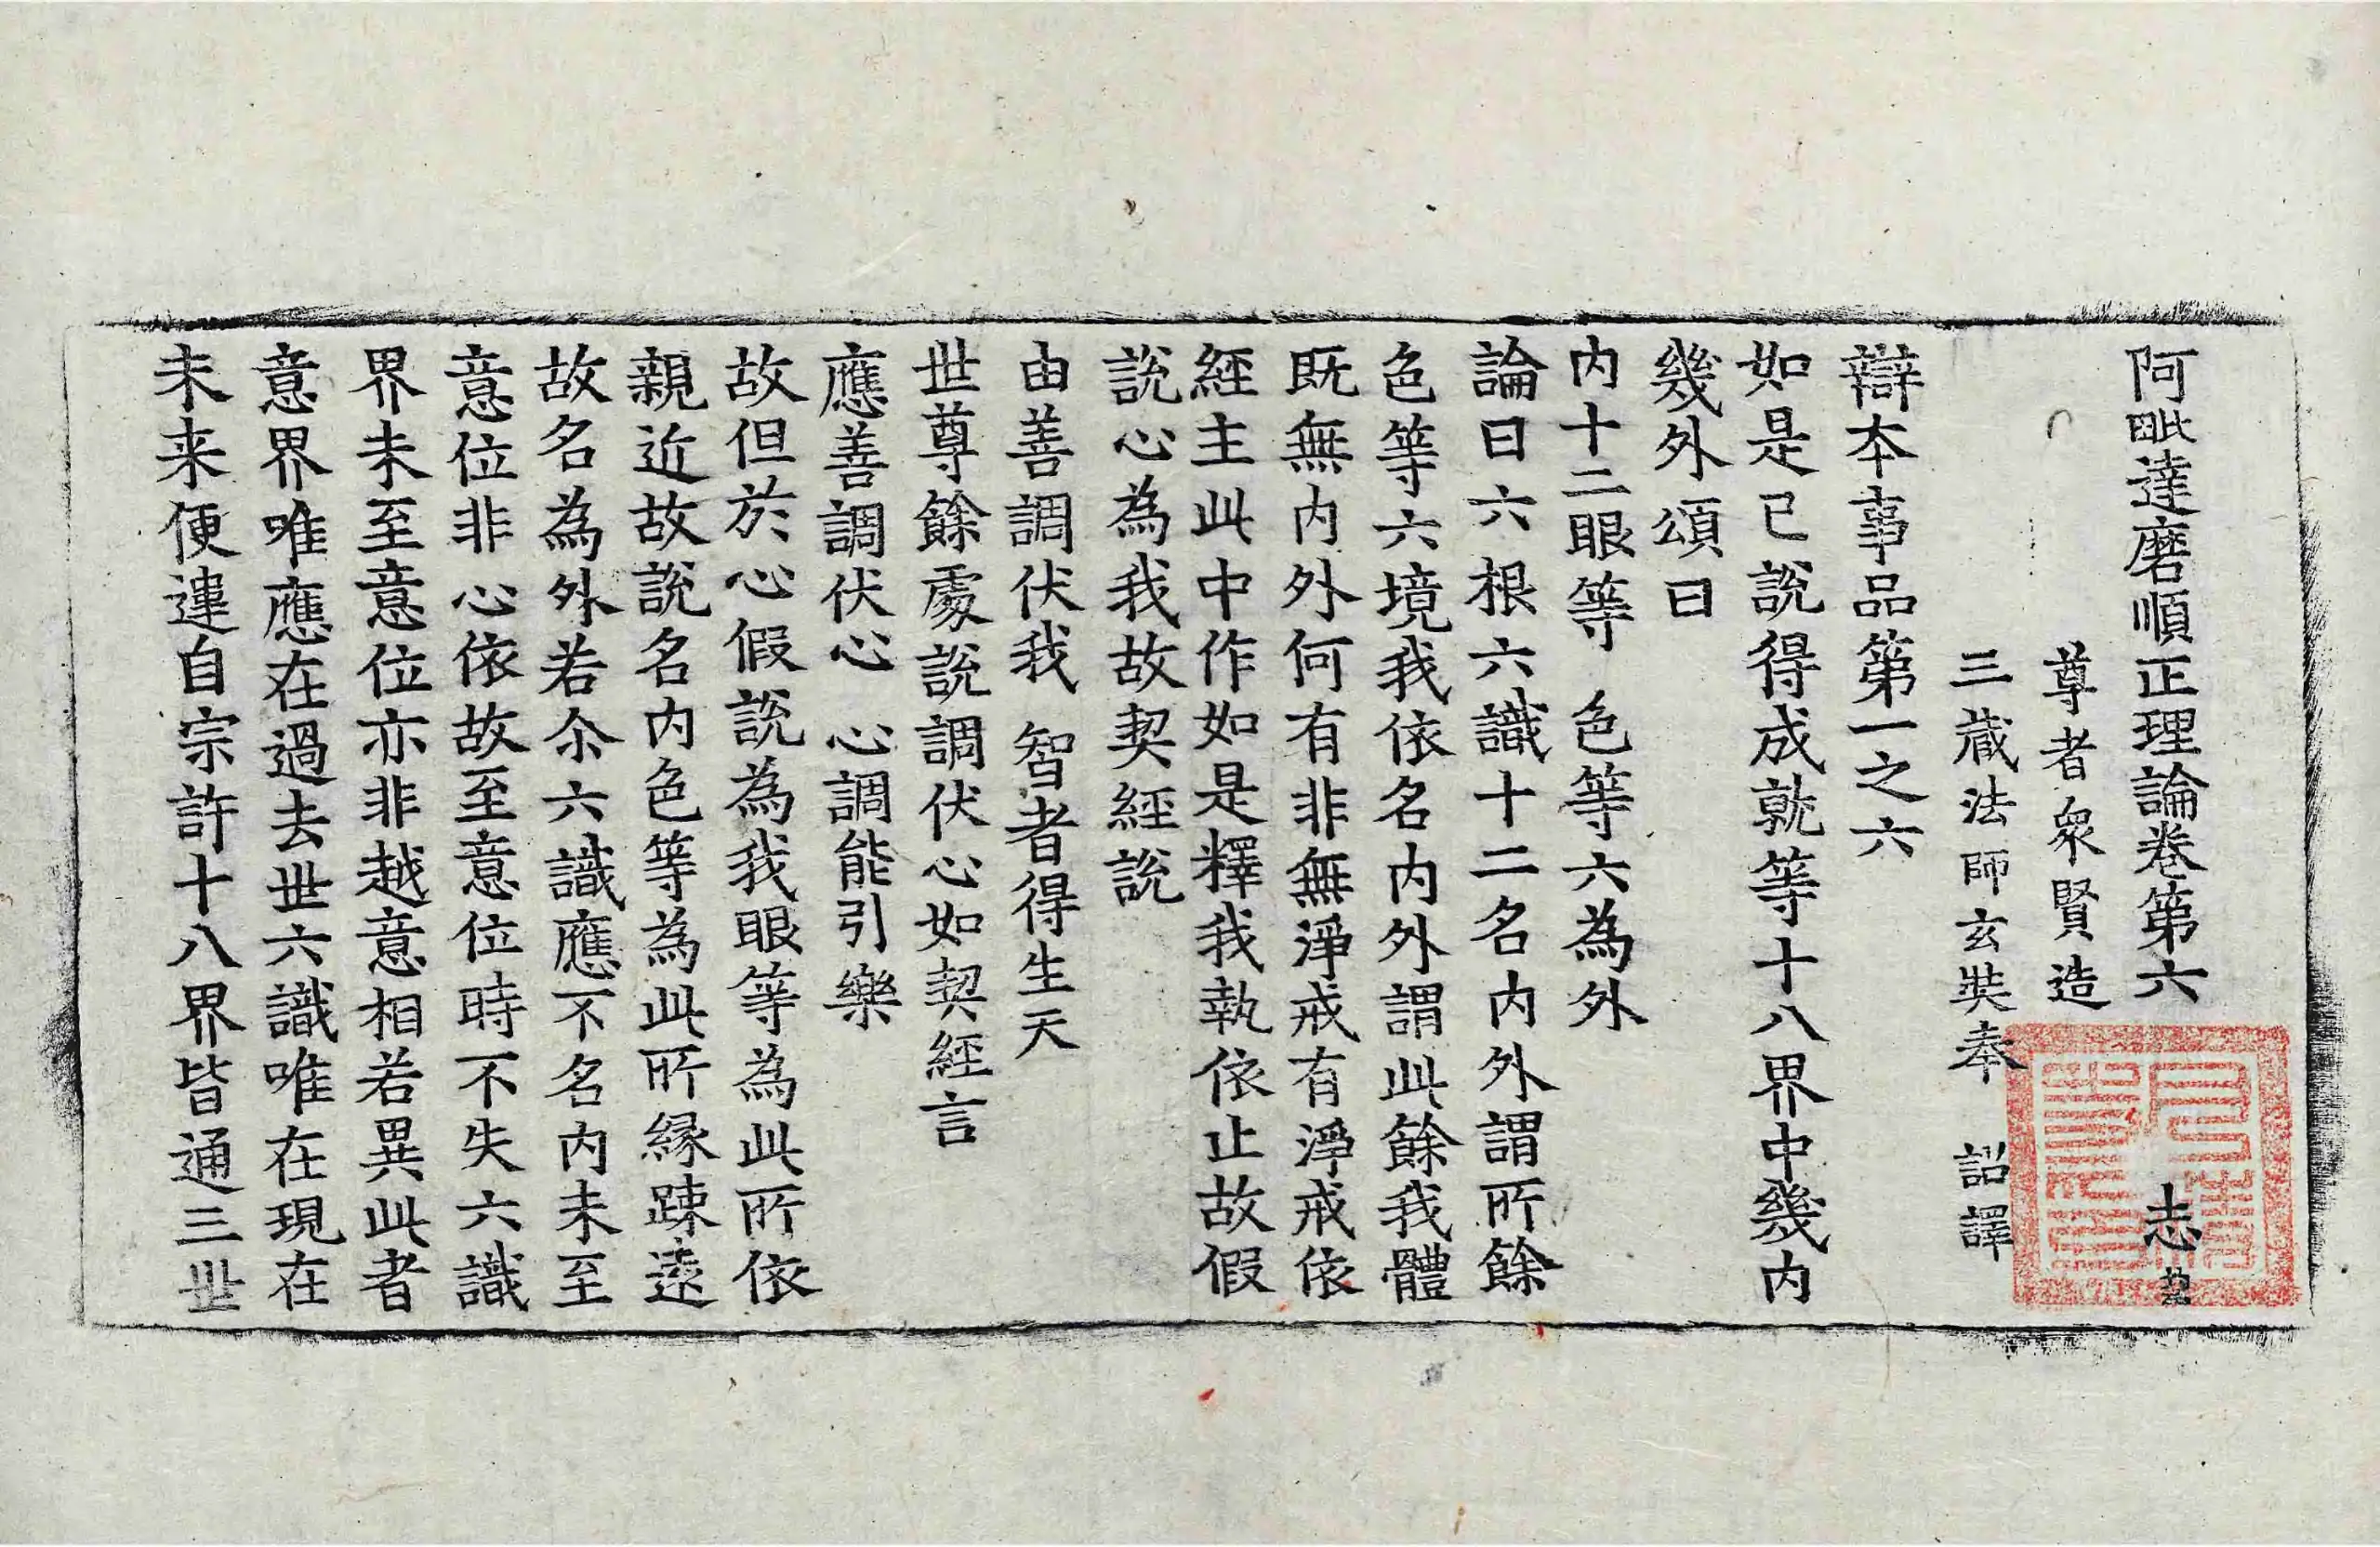 阿毗達磨順正理論卷第六 志
尊者衆賢造
三藏法師玄奘奉 詔譯
辯本事品第一之六
如是已說得成就等十八界中幾内
幾外頌曰
内十二眼等 色等六為外
論曰六根六識十二名内外謂所餘
色等六境我依名内外謂此餘我體
既無内外何有非無淨戒有淨戒依
經主此中作如是釋我執依止故假
說心為我故契經說
由善調伏我 智者得生天
世尊餘處說調伏心如契經言
應善調伏心 心調能引樂
故但於心假說為我眼等為此所依
親近故說名内色等為此所緣踈遠
故名為外若尒六識應不名内未至
意位非心依故至意位時不失六識
界未至意位亦非越意相若異此者
意界唯應在過去世六識唯在現在
未来便違自宗許十八界皆通三世